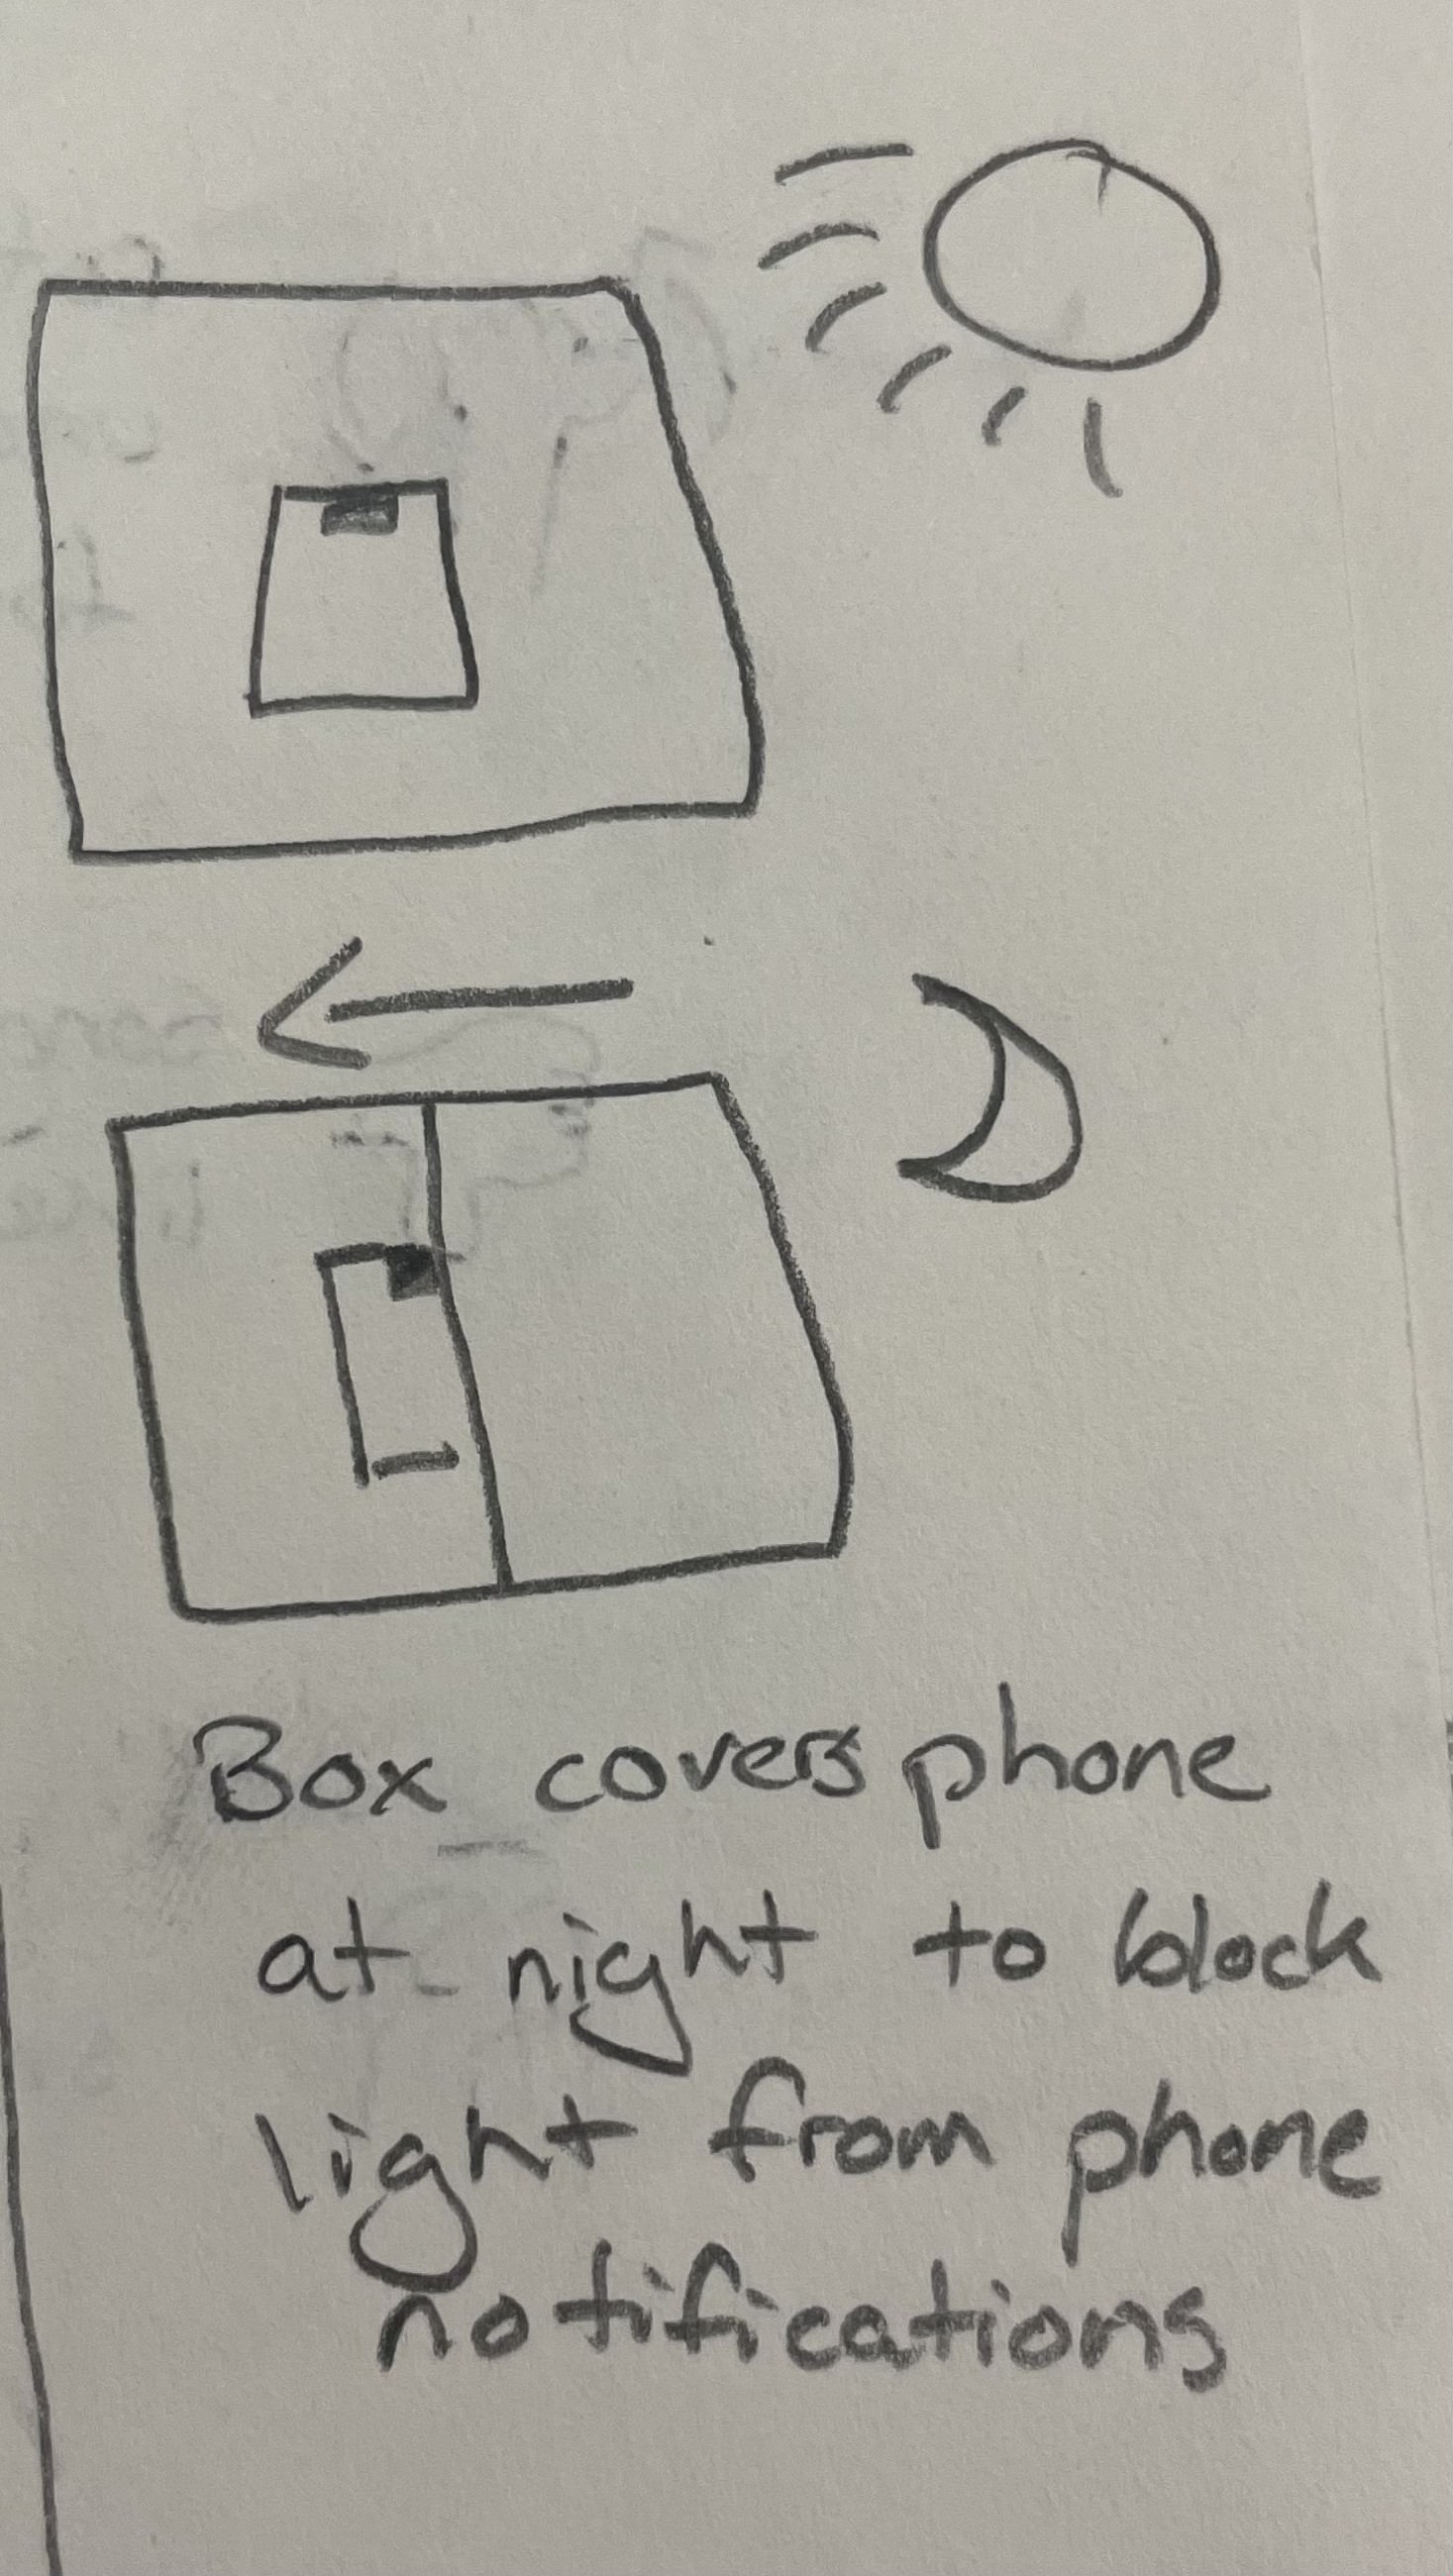 Box covers phone
at night to block
light from phone
notifications